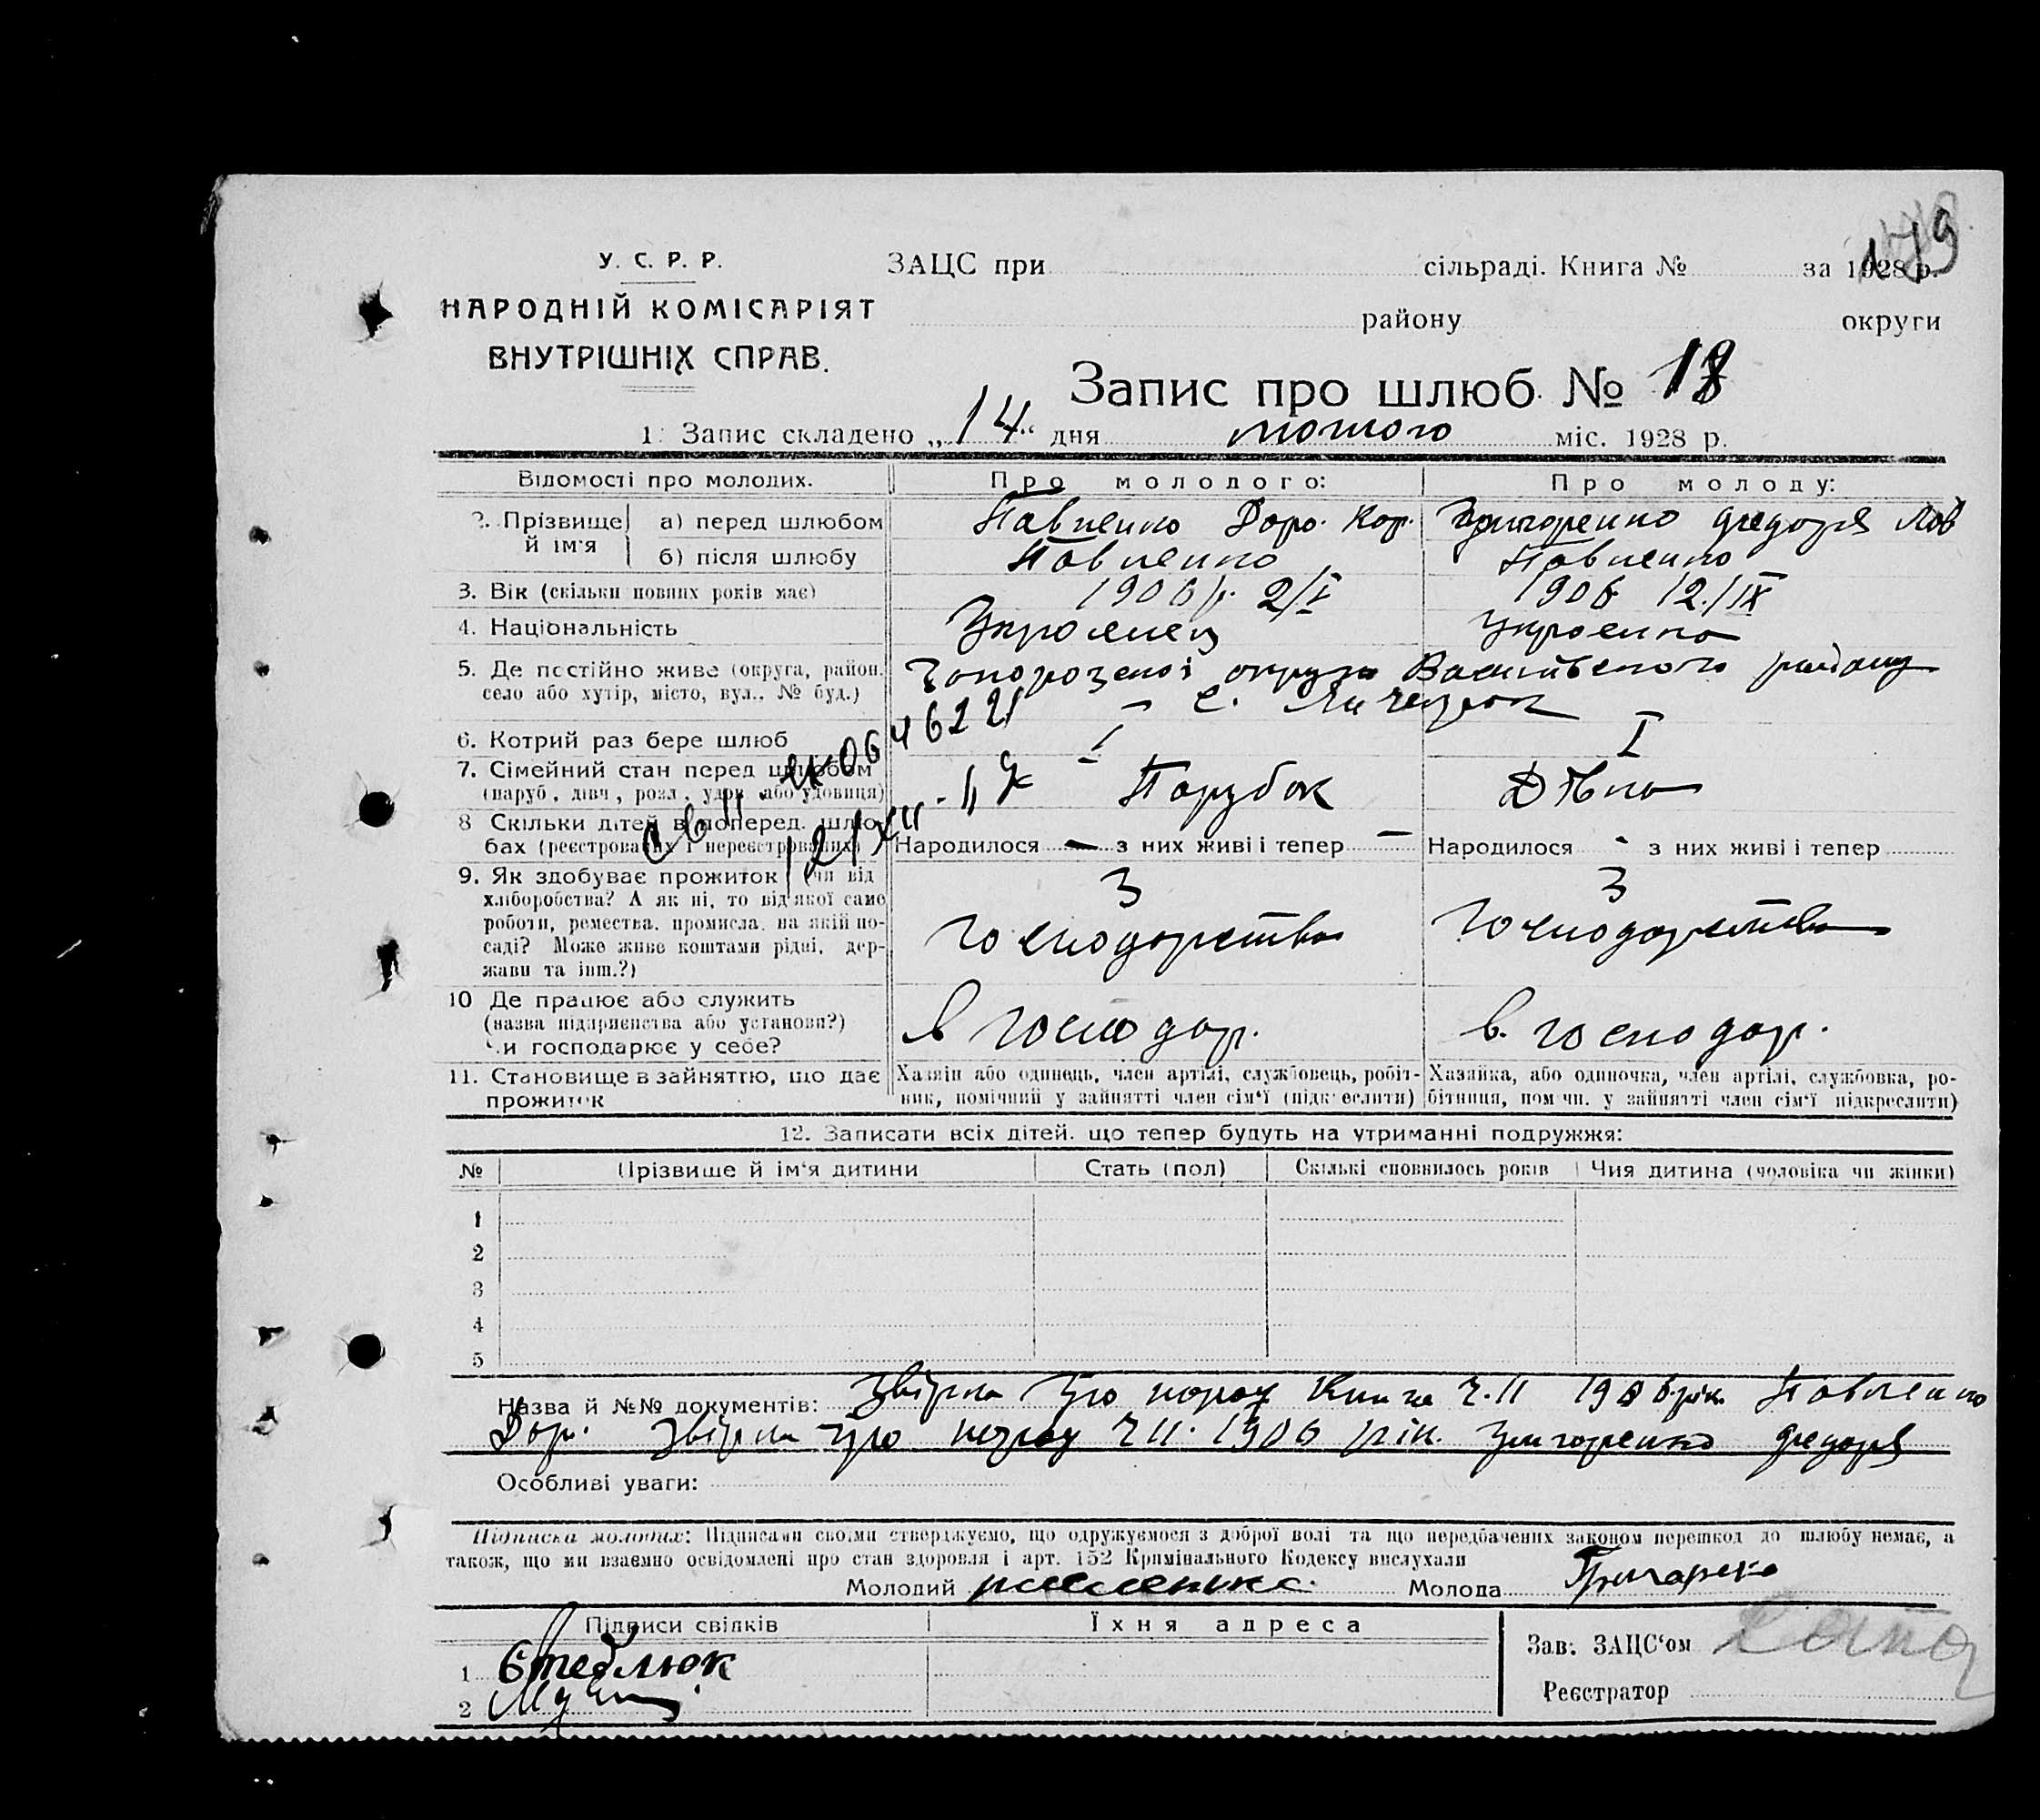 179
У. С. Р. Р.
НАРОДНІЙ КОМІСАРІЯТ
ВНУТРІШНІХ СПРАВ.
ЗАЦС при сільраді. Книга № за 1928 р.
району округи
Запис про шлюб. № 18
1. Запис складено „14" дня лютого міс. 1928 р.
Відомості про молодих. Про молодого: Про молоду:
2. Прізвище й ім'я
а) перед шлюбом Павленко Доро. Кор. Григоренко Федора
б) після шлюбу Павленко Павленко
3. Вік (скільки повних років має) 1906 р. 2/V 1906 12/IX
4. Національність Українец Українка
5. Де постійно живе (округа, район, Запорозької округи Василівського району
село або хутір, місто, вул., № буд.) с.
6. Котрий раз бере шлюб I I
7. Сімейний стан перед шлюбом Парубок Дівка
(паруб., дівч., розл., удов. або удовиця)
8 Скільки дітей в поперед. шлю-
бах (реєстрованих і нереєстрованих) Народилося — з них живі і тепер — Народилося - з них живі і тепер
9. Як здобуває прожиток (чи від З З
хліборобства? А як ні, то від якої само
роботи, ремества, промисла, на якій по- господарства господарства
саді? Може живе коштами рідні, дер-
жави та інш.?)
10 Де працює або служить
(назва підприємства або установи?) в господар. в. господар.
Чи господарює у себе?
11. Становище в зайняттю, що дає прожиток
Хазяїн або одинець, член артілі, службовець, робіт-
ник, помічний у зайнятті член сім'ї (підкреслити)
Хазяйка, або одиночка, член артілі, службовка, ро-
бітниця, пом чн. у зайнятті член сім'ї підкреслити)
12. Записати всіх дітей, що тепер будуть на утриманні подружжя:
№ Прізвище й ім'я дитини Стать (пол) Скількі сповнилось років Чия дитина (чоловіка чи жінки)
1
2
3
4
5
Назва й №№ документів: Звірка про народ Книга ч. II 1906 рік Павленко
Дор. Звірка про народ ч II. 1906 рік. Григоренко Федора
Особливі уваги:
Підписка молодих: Підписами своїми стверджуємо, що одружуємося з доброї волі та що передбачених законом перешкод до шлюбу немає, а
також, що ми взаємно освідомлені про стан здоровля і арт. 152 Кримінального Кодексу вислухали
Молодий Молода
Підписи свідків Їхня адреса
Зав. ЗАЦС'ом
1 Стеблюк
Реєстратор
2